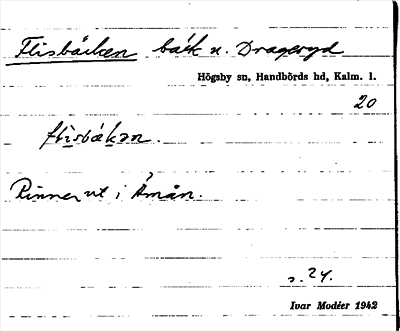 Flisbäcken bäck n. Drageryd
Högsby sn, Handbörds hd, Kalm. l.
20
flìsbäkən.
Rinner ut i Åmån.
s. 24.
Ivar Modéer 1942